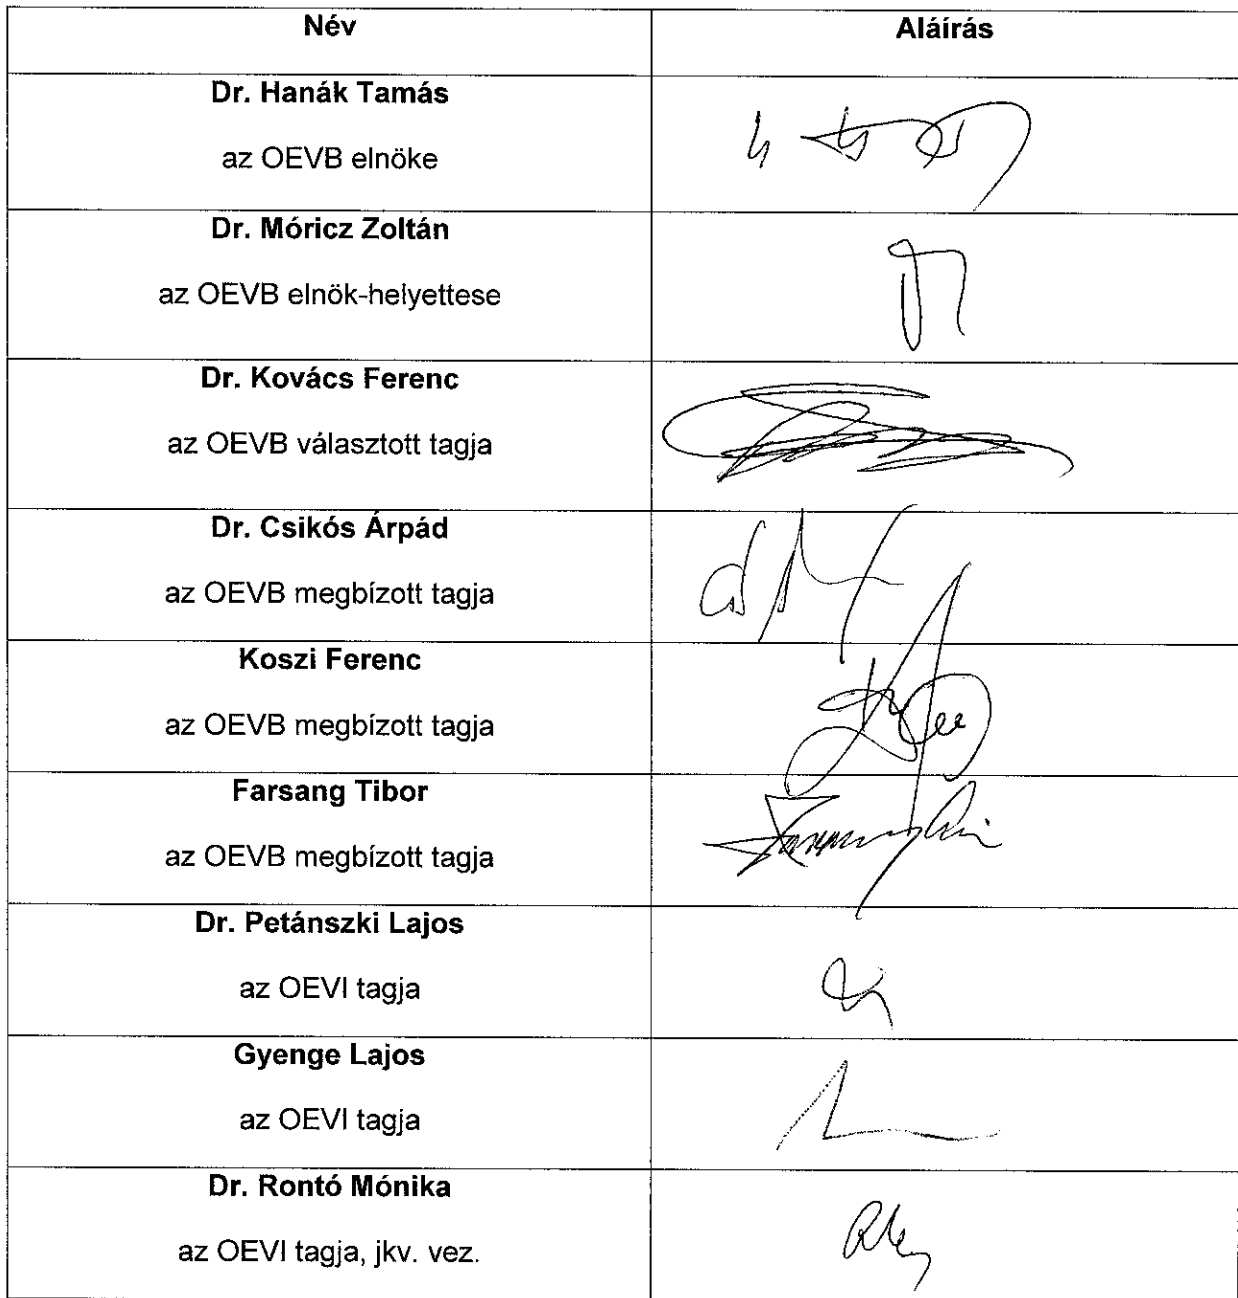 Név Aláírás
Dr. Hanák Tamás
az OEVB elnöke
Dr. Móricz Zoltán
az OEVB elnök-helyettese
Dr. Kovács Ferenc
az OEVB választott tagja
Dr. Csikós Árpád
az OEVB megbízott tagja
Koszi Ferenc
az OEVB megbízott tagja
Farsang Tibor
az OEVB megbízott tagja
Dr. Petánszki Lajos
az OEVI tagja
Gyenge Lajos
az OEVI tagja
Dr. Rontó Mónika
az OEVI tagja, jkv. vez.